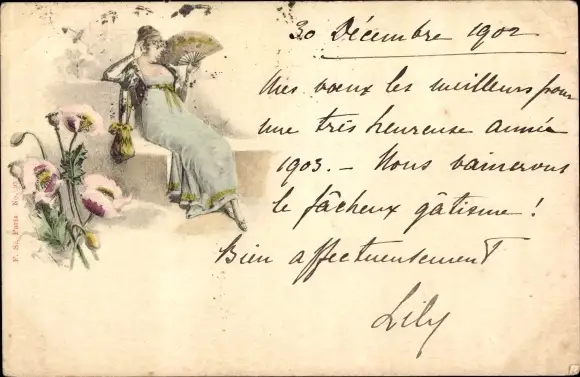 30 Décembre 1902
Mes vœux les meilleurs pour
une très heureuse année
1903. – Nous vaincrons
le fâcheux gâtisme !
Bien affectueusement
Lily
F. S., Paris No.